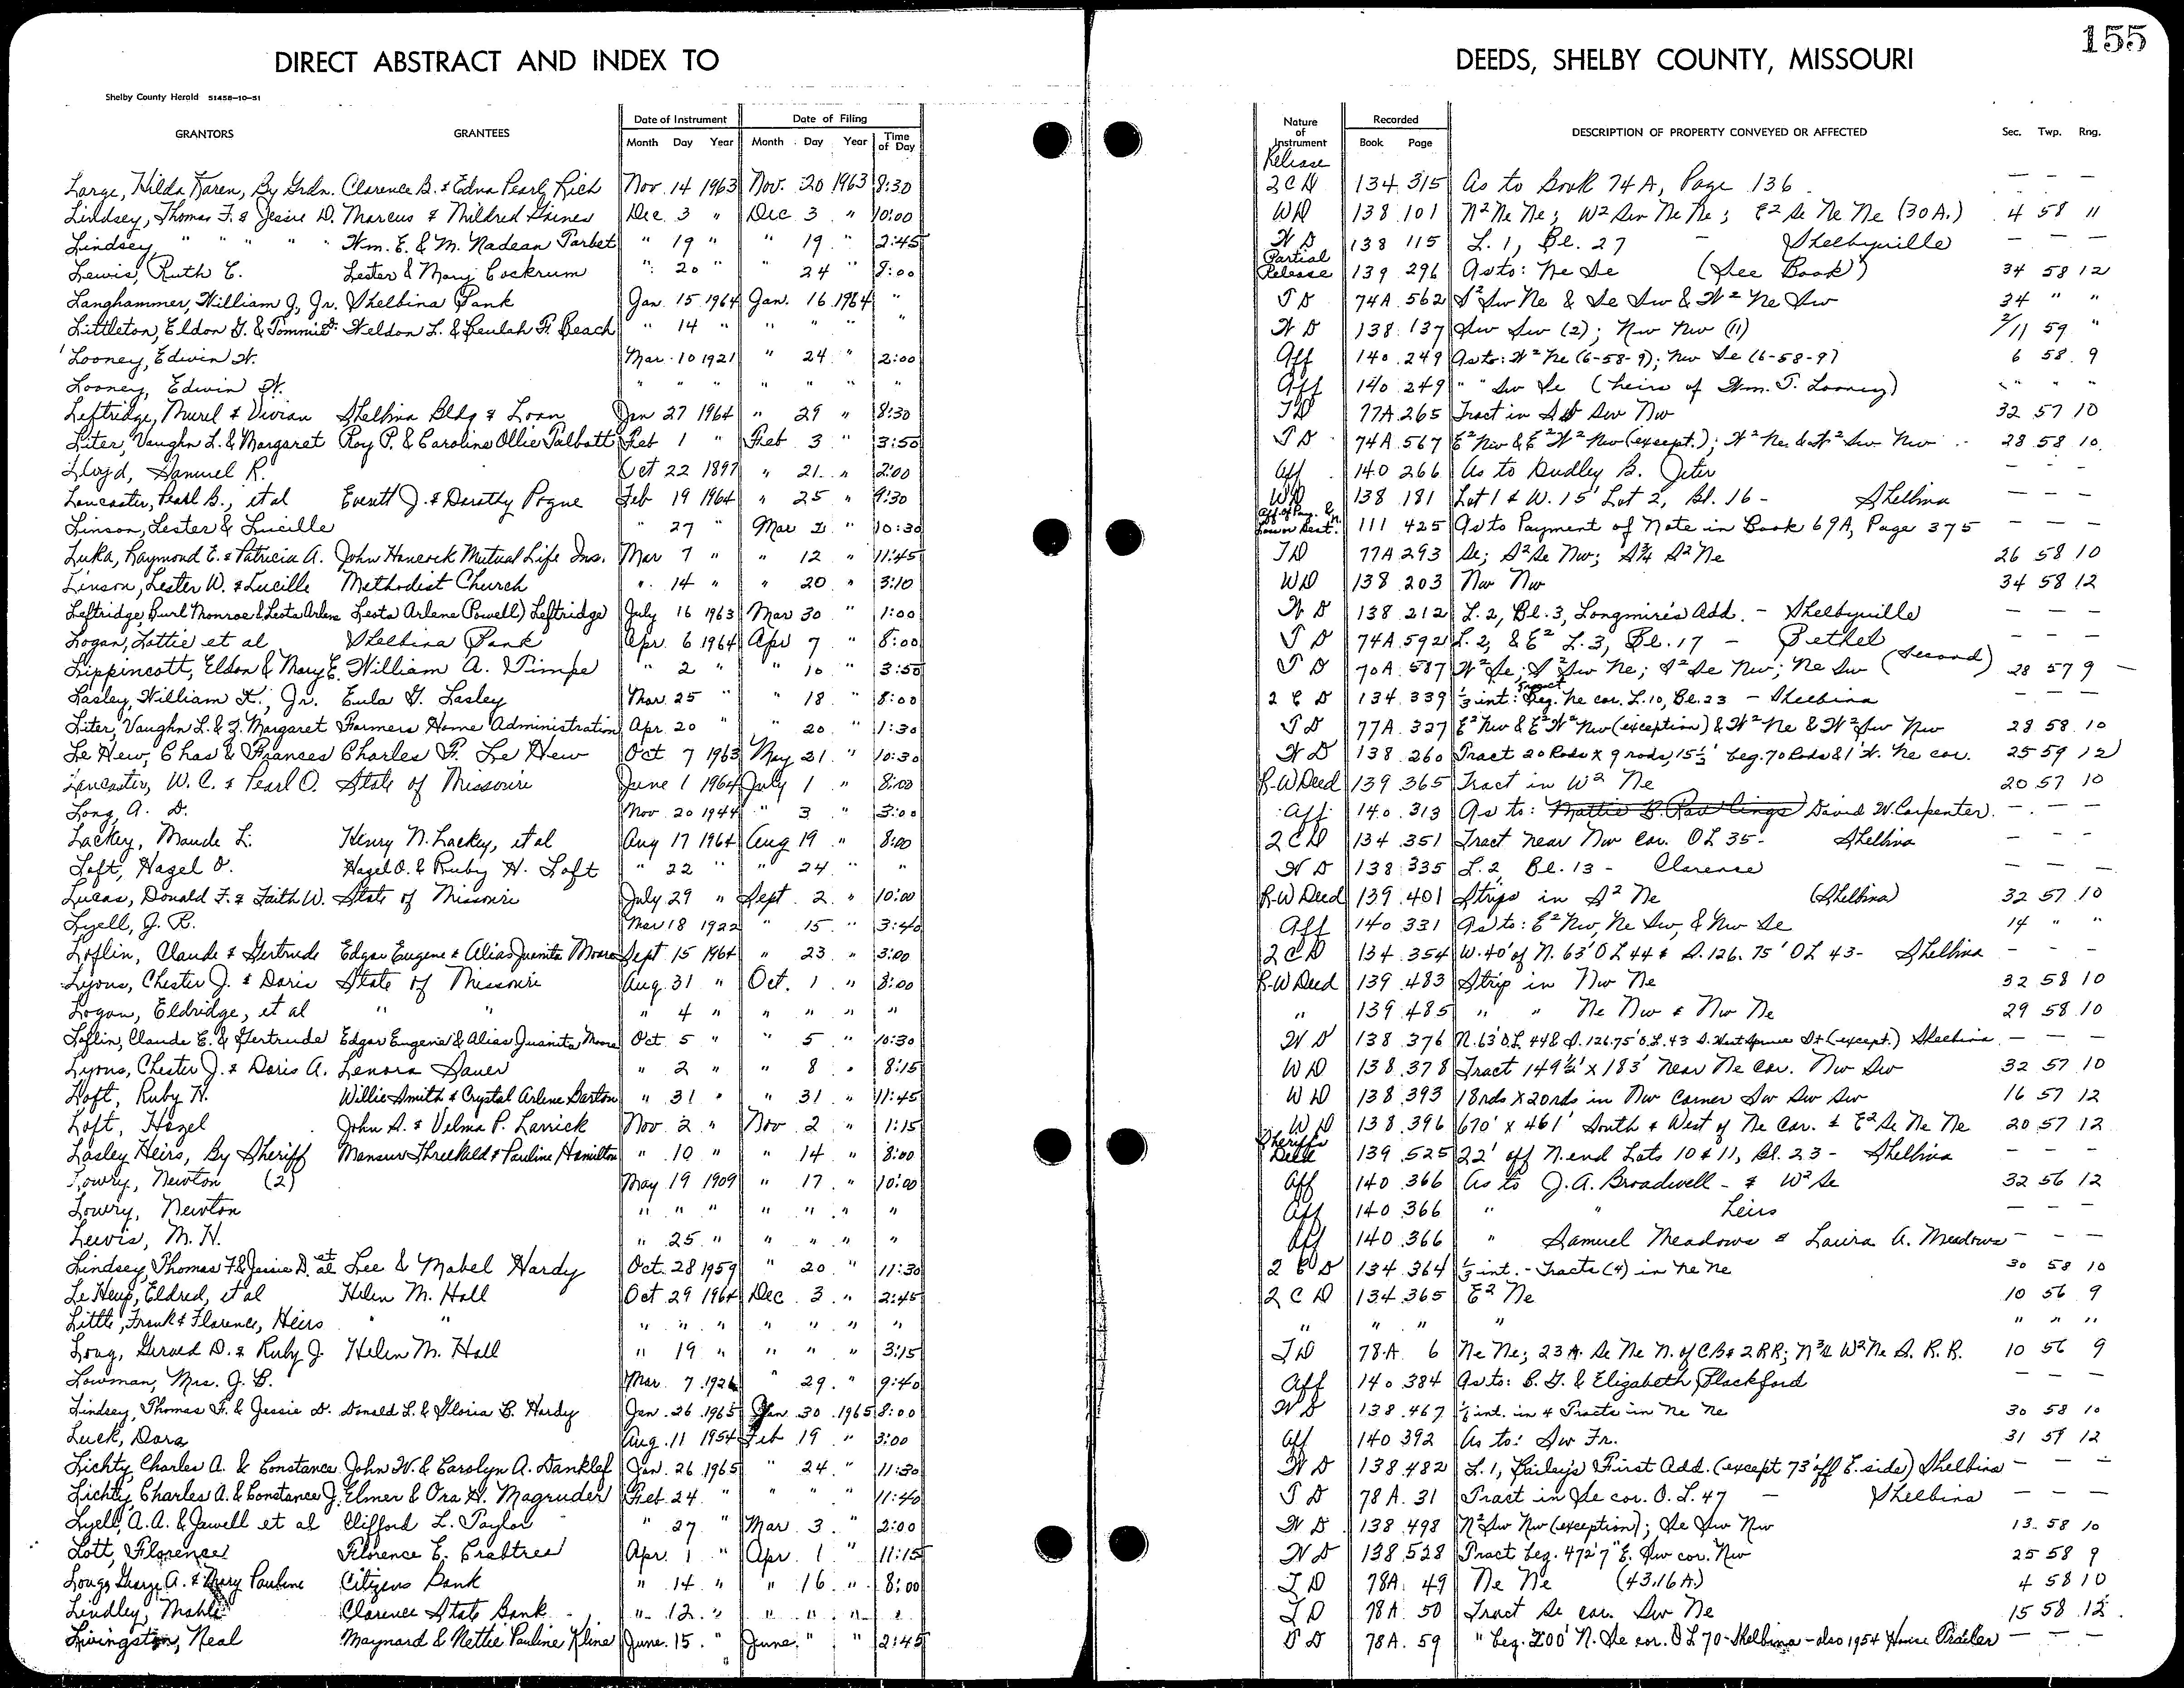 155
DIRECT ABSTRACT AND INDEX TO DEEDS, SHELBY COUNTY, MISSOURI
Shelby County Herald 51458-10-51
GRANTORS GRANTEES Date of Instrument Date of Filing Nature of Instrument Recorded DESCRIPTION OF PROPERTY CONVEYED OR AFFECTED Sec. Twp. Rng.
Month Day Year Month Day Year Time of Day Book Page
Release
Large, Hilda Karen, By Grdn. Clarence B. & Edna Pearl Rich Nov. 14 1963 Nov. 20 1963 8:30 2CD 134 315 As to Book 74A, Page 136 — — —
Lindsey, Thomas F. & Jessie D. Marcus & Mildred Gaines Dec. 3 " Dec 3 " 10:00 WD 138 101 N² Ne Ne; W² Sw Ne Ne; E² Se Ne Ne (30 A.) 4 58 11
Lindsey " " " " Wm. E. & M. Nadean Tarbet " 19 " " 19 " 2:45 WD 138 115 L. 1, Bl. 27 – Shelbyville — — —
Lewis, Ruth E. Lester & Mary Cockrum " 20 " " 24 8:00 Partial Release 139 296 As to: Ne Se (See Book) 34 58 12
Langhammer, William J., Jr. Shelbina Bank Jan. 15 1964 Jan. 16 1964 " TD 74A 562 S² Sw Ne & Se Sw & W² Ne Sw 34 " "
Littleton, Eldon G. & Tommie D. Weldon L. & Beulah F. Beach " 14 " " " " " WD 138 137 Sw Sw (2); Nw Nw (11) 2/11 59 "
Looney, Edwin W. Mar. 10 1921 " 24 " 2:00 Aff 140 249 As to: W² Ne (6-58-9); Nw Se (6-58-9) 6 58 9
Looney, Edwin W. " " " " " " " Aff 140 249 " " Sw Se (heirs of Wm. T. Looney) " " "
Leftridge, Murel & Vivian Shelbina Bldg & Loan Jan 27 1964 " 29 " 8:30 TD 77A 265 Tract in Sw Nw 32 57 10
Liter, Vaughn L. & Margaret Roy P. & Caroline Ollie Talbott Feb 1 " Feb 3 " 3:50 TD 74A 567 E² Nw & E² W² Nw (except.); W² Ne & W² Sw Nw 28 58 10
Lloyd, Samuel R. Oct 22 1897 " 21 " 2:00 Aff 140 266 As to Dudley B. Jeter — — —
Lancaster, Pearl B., et al Everett J. & Dorothy Pogue Feb 19 1964 " 25 " 9:30 WD 138 181 Lot 1 & W. 15' Lot 2, Bl. 16 - Shelbina — — —
Linson, Lester & Lucille " 27 " Mar 2 " 10:30 Aff. of Pay. & 111 425 As to Payment of Note in Book 69A, Page 375 — — —
Luka, Raymond E. & Patricia A. John Hancock Mutual Life Ins. Mar 7 " " 12 " 11:45 TD 77A 293 Se; S² Se Nw; S¾ S² Ne 26 58 10
Linson, Lester W. & Lucille Methodist Church " 14 " " 20 " 3:10 WD 138 203 Nw Nw 34 58 12
Leftridge, Burl Monroe & Lesta Arlene Lesta Arlene (Powell) Leftridge July 16 1963 Mar 30 " 1:00 WD 138 212 L. 2, Bl. 3, Longmire's Add. – Shelbyville — — —
Logan, Lottie et al Shelbina Bank Apr. 6 1964 Apr 7 " 8:00 TD 74A 592 L. 2, & E² L. 3, Bl. 17 – Bethel — — —
Lippincott, Eldon & Mary E. William A. Timpe " 2 " " 10 " 3:50 TD 70A 587 W² Se; S² Sw Ne; S² Se Nw; Ne Sw (Second) 28 57 9 —
Lasley, William K., Jr. Eula G. Lasley Mar. 25 " " 18 " 8:00 2CD 134 339 ⅓ int: Tract Beg. Ne cor. L. 10, Bl. 23 – Shelbina — — —
Liter, Vaughn L. & Z. Margaret Farmers Home Administration Apr. 20 " " 20 " 1:30 TD 77A 327 E² Nw & E² W² Nw (exception) & W² Ne & W² Sw Nw 28 58 10
Le Hew, Chas & Frances Charles F. Le Hew Oct 7 1963 May 21 " 10:30 WD 138 260 Tract 20 Rods X 9 rods, 15½' beg. 70 Rods & 1' W. Ne cor. 25 59 12
Lancaster, W. C. & Pearl O. State of Missouri June 1 1964 July 1 " 8:00 R-W Deed 139 365 Tract in W² Ne 20 57 10
Long, A. D. Nov 20 1944 " 3 " 3:00 Aff. 140 313 As to: Mattie B. Rawlings David W. Carpenter — — —
Lackey, Maude L. Henry N. Lackey, et al Aug 17 1964 Aug 19 " 8:00 2CD 134 351 Tract near Nw cor. OL 35 - Shelbina — — —
Loft, Hazel O. Hazel O. & Ruby H. Loft " 22 " " 24 " " WD 138 335 L. 2, Bl. 13 - Clarence — — —
Lucas, Donald F. & Faith W. State of Missouri July 29 " Sept. 2 " 10:00 R-W Deed 139 401 Strips in S² Ne (Shelbina) 32 57 10
Lyell, J. R. Mar 18 1922 " 15 " 3:40 Aff 140 331 As to: E² Nw, Ne Sw, & Nw Se 14 " "
Loflin, Claude & Gertrude Edgar Eugene & Alias Juanita Moore Sept 15 1964 " 23 " 3:00 2CD 134 354 W. 40' of N. 63' OL 44 & S. 126.75' OL 43 - Shelbina — — —
Lyons, Chester J. & Doris State of Missouri Aug. 31 " Oct. 1 " 8:00 R-W Deed 139 483 Strip in Nw Ne 32 58 10
Logan, Eldridge, et al " " " 4 " " " " " " 139 485 " " Ne Nw & Nw Ne 29 58 10
Loflin, Claude E. & Gertrude Edgar Eugene & Alias Juanita Moore Oct 5 " " 5 " 10:30 WD 138 376 N. 63' O.L. 44 & S. 126.75' O.L. 43 S. West Spruce St (except.) Shelbina — — —
Lyons, Chester J. & Doris A. Lenora Sauer " 2 " " 8 " 8:15 WD 138 378 Tract 149½' x 183' near Ne cor. Nw Sw 32 57 10
Loft, Ruby H. Willie Smith & Crystal Arlene Barton " 31 " " 31 " 11:45 WD 138 393 18rds X 20rds in Nw corner Sw Sw Sw 16 57 12
Loft, Hazel John A. & Velma P. Larrick Nov. 2 " Nov 2 " 1:15 WD 138 396 670' x 461' South & West of Ne cor. & E² Se Ne Ne 20 57 12
Lasley Heirs, By Sheriff Mansur Threlkeld & Pauline Hamilton " 10 " " 14 " 8:00 Sheriff's Deed 139 525 22' off N. end Lots 10 & 11, Bl. 23 - Shelbina — — —
Lowry, Newton (2) May 19 1909 " 17 " 10:00 Aff 140 366 As to J. A. Broadwell - & W² Se 32 56 12
Lowry, Newton " " " " " " " Aff 140 366 " " heirs — — —
Lewis, M. H. " 25 " " " " " Aff 140 366 " Samuel Meadows & Laura A. Meadows — — —
Lindsey, Thomas F. & Jessie D. et al Lee & Mabel Hardy Oct. 28 1959 " 20 " 11:30 2CD 134 364 ⅓ int. - Tracts (4) in Ne Ne 30 58 10
Le Hew, Eldred, et al Helen M. Hall Oct 29 1964 Dec 3 " 2:45 2CD 134 365 E² Ne 10 56 9
Little, Frank & Florence, Heirs " " " " " " " " " " " " " " " "
Long, Gerald D. & Ruby J. Helen M. Hall " 19 " " " " 3:15 TD 78A 6 Ne Ne; 23 A. Se Ne N. of CB & Q RR; N¾ W² Ne S. R. R. 10 56 9
Lowman, Mrs. J. B. Mar. 7 1926 " 29 " 9:40 Aff 140 384 As to: B. G. & Elizabeth Blackford — — —
Lindsey, Thomas F. & Jessie D. Donald L. & Gloria B. Hardy Jan. 26 1965 Jan 30 1965 8:00 WD 138 467 int. in 4 Tracts in Ne Ne 30 58 10
Luck, Dora Aug. 11 1954 Feb 19 " 3:00 Aff 140 392 As to: Sw Fr. 31 57 12
Lichty, Charles A. & Constance John W. & Carolyn A. Danklef Jan. 26 1965 " 24 " 11:30 WD 138 482 L. 1, Bailey's First Add. (except 73' off E. side) Shelbina — — —
Lichty, Charles A. & Constance J. Elmer & Ora H. Magruder Feb. 24 " " " " 11:40 TD 78A 31 Tract in Se cor. O. L. 47 – Shelbina — — —
Lyell, A. A. & Jewell et al Clifford L. Taylor " 27 " Mar 3 " 2:00 WD 138 498 N² Sw Nw (exception); Se Sw Nw 13 58 10
Lott, Florence Florence E. Crabtree Apr. 1 " Apr. 1 " 11:15 WD 138 528 Tract beg. 472'7" E. Sw cor. Nw 25 58 9
Long, George A. & Mary Pauline Citizens Bank " 14 " " 16 " 8:00 TD 78A 49 Ne Ne (43.16 A.) 4 58 10
Lindley, Mable Clarence State Bank " 12 " " " " " TD 78A 50 Tract Se cor. Sw Ne 15 58 12
Livingston, Neal Maynard & Nettie Pauline Kline June 15 " June " " 2:45 TD 78A 59 " beg. 200' N. Se cor. OL 70 - Shelbina - also 1954 House Trailer — — —